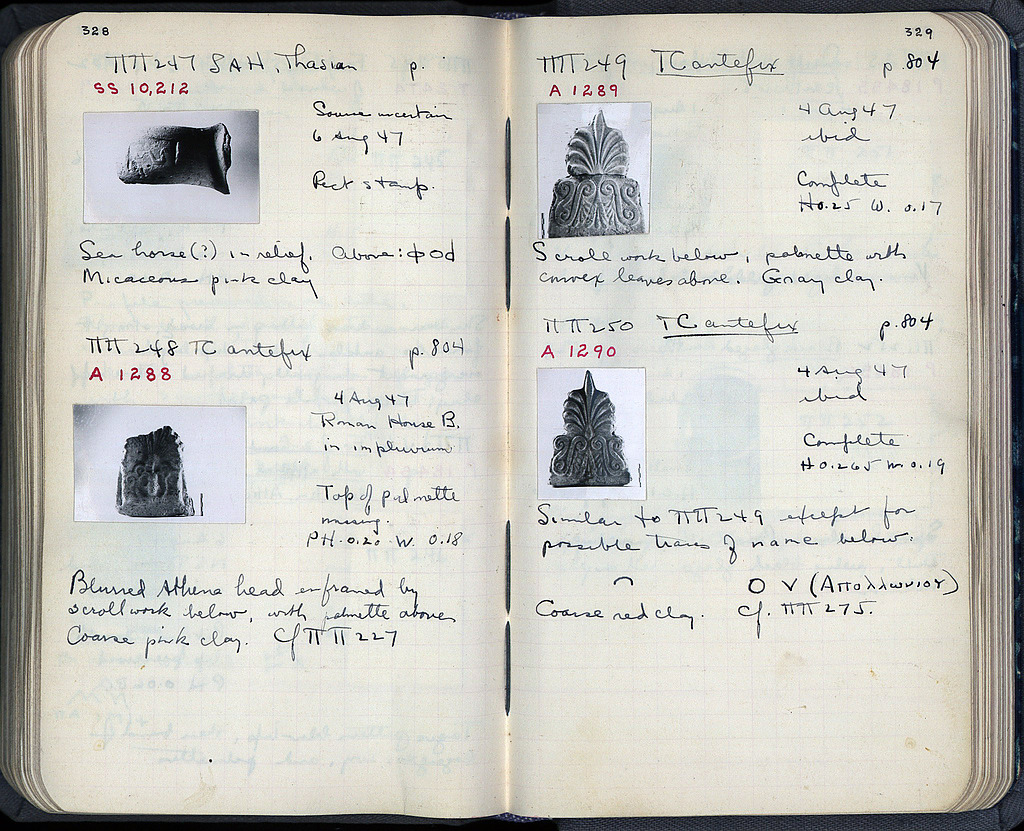 328
ΠΠ247 SAH, Thasian p.
SS 10,212
Source uncertain
6 Aug 47
Rect stamp.
Sea horse(?) in relief. Above: ϕOd
Micaceous pink clay
ΠΠ 248 TC antefix p. 804
A 1288
4 Aug 47
Roman House B.
in impluvium
Top of palmette
missing.
PH. 0.20 W. 0.18
Blurred Athena head enframed by
scrollwork below, with palmette above
Coarse pink clay. Cf ΠΠ227
329
ΠΠ249 TC antefix p. 804
A 1289
4 Aug 47
ibid
Complete
H 0.25 W. 0.17
Scroll work below, palmette with
convex leaves above. Gray clay.
ΠΠ250 TC antefix p. 804
A 1290
4 Aug 47
ibid
Complete
H 0.265 W 0.19
Similar to ΠΠ249 except for
possible traces of name below:
Ο Υ (Απολλωνιου)
Coarse red clay. Cf. ΠΠ 275.